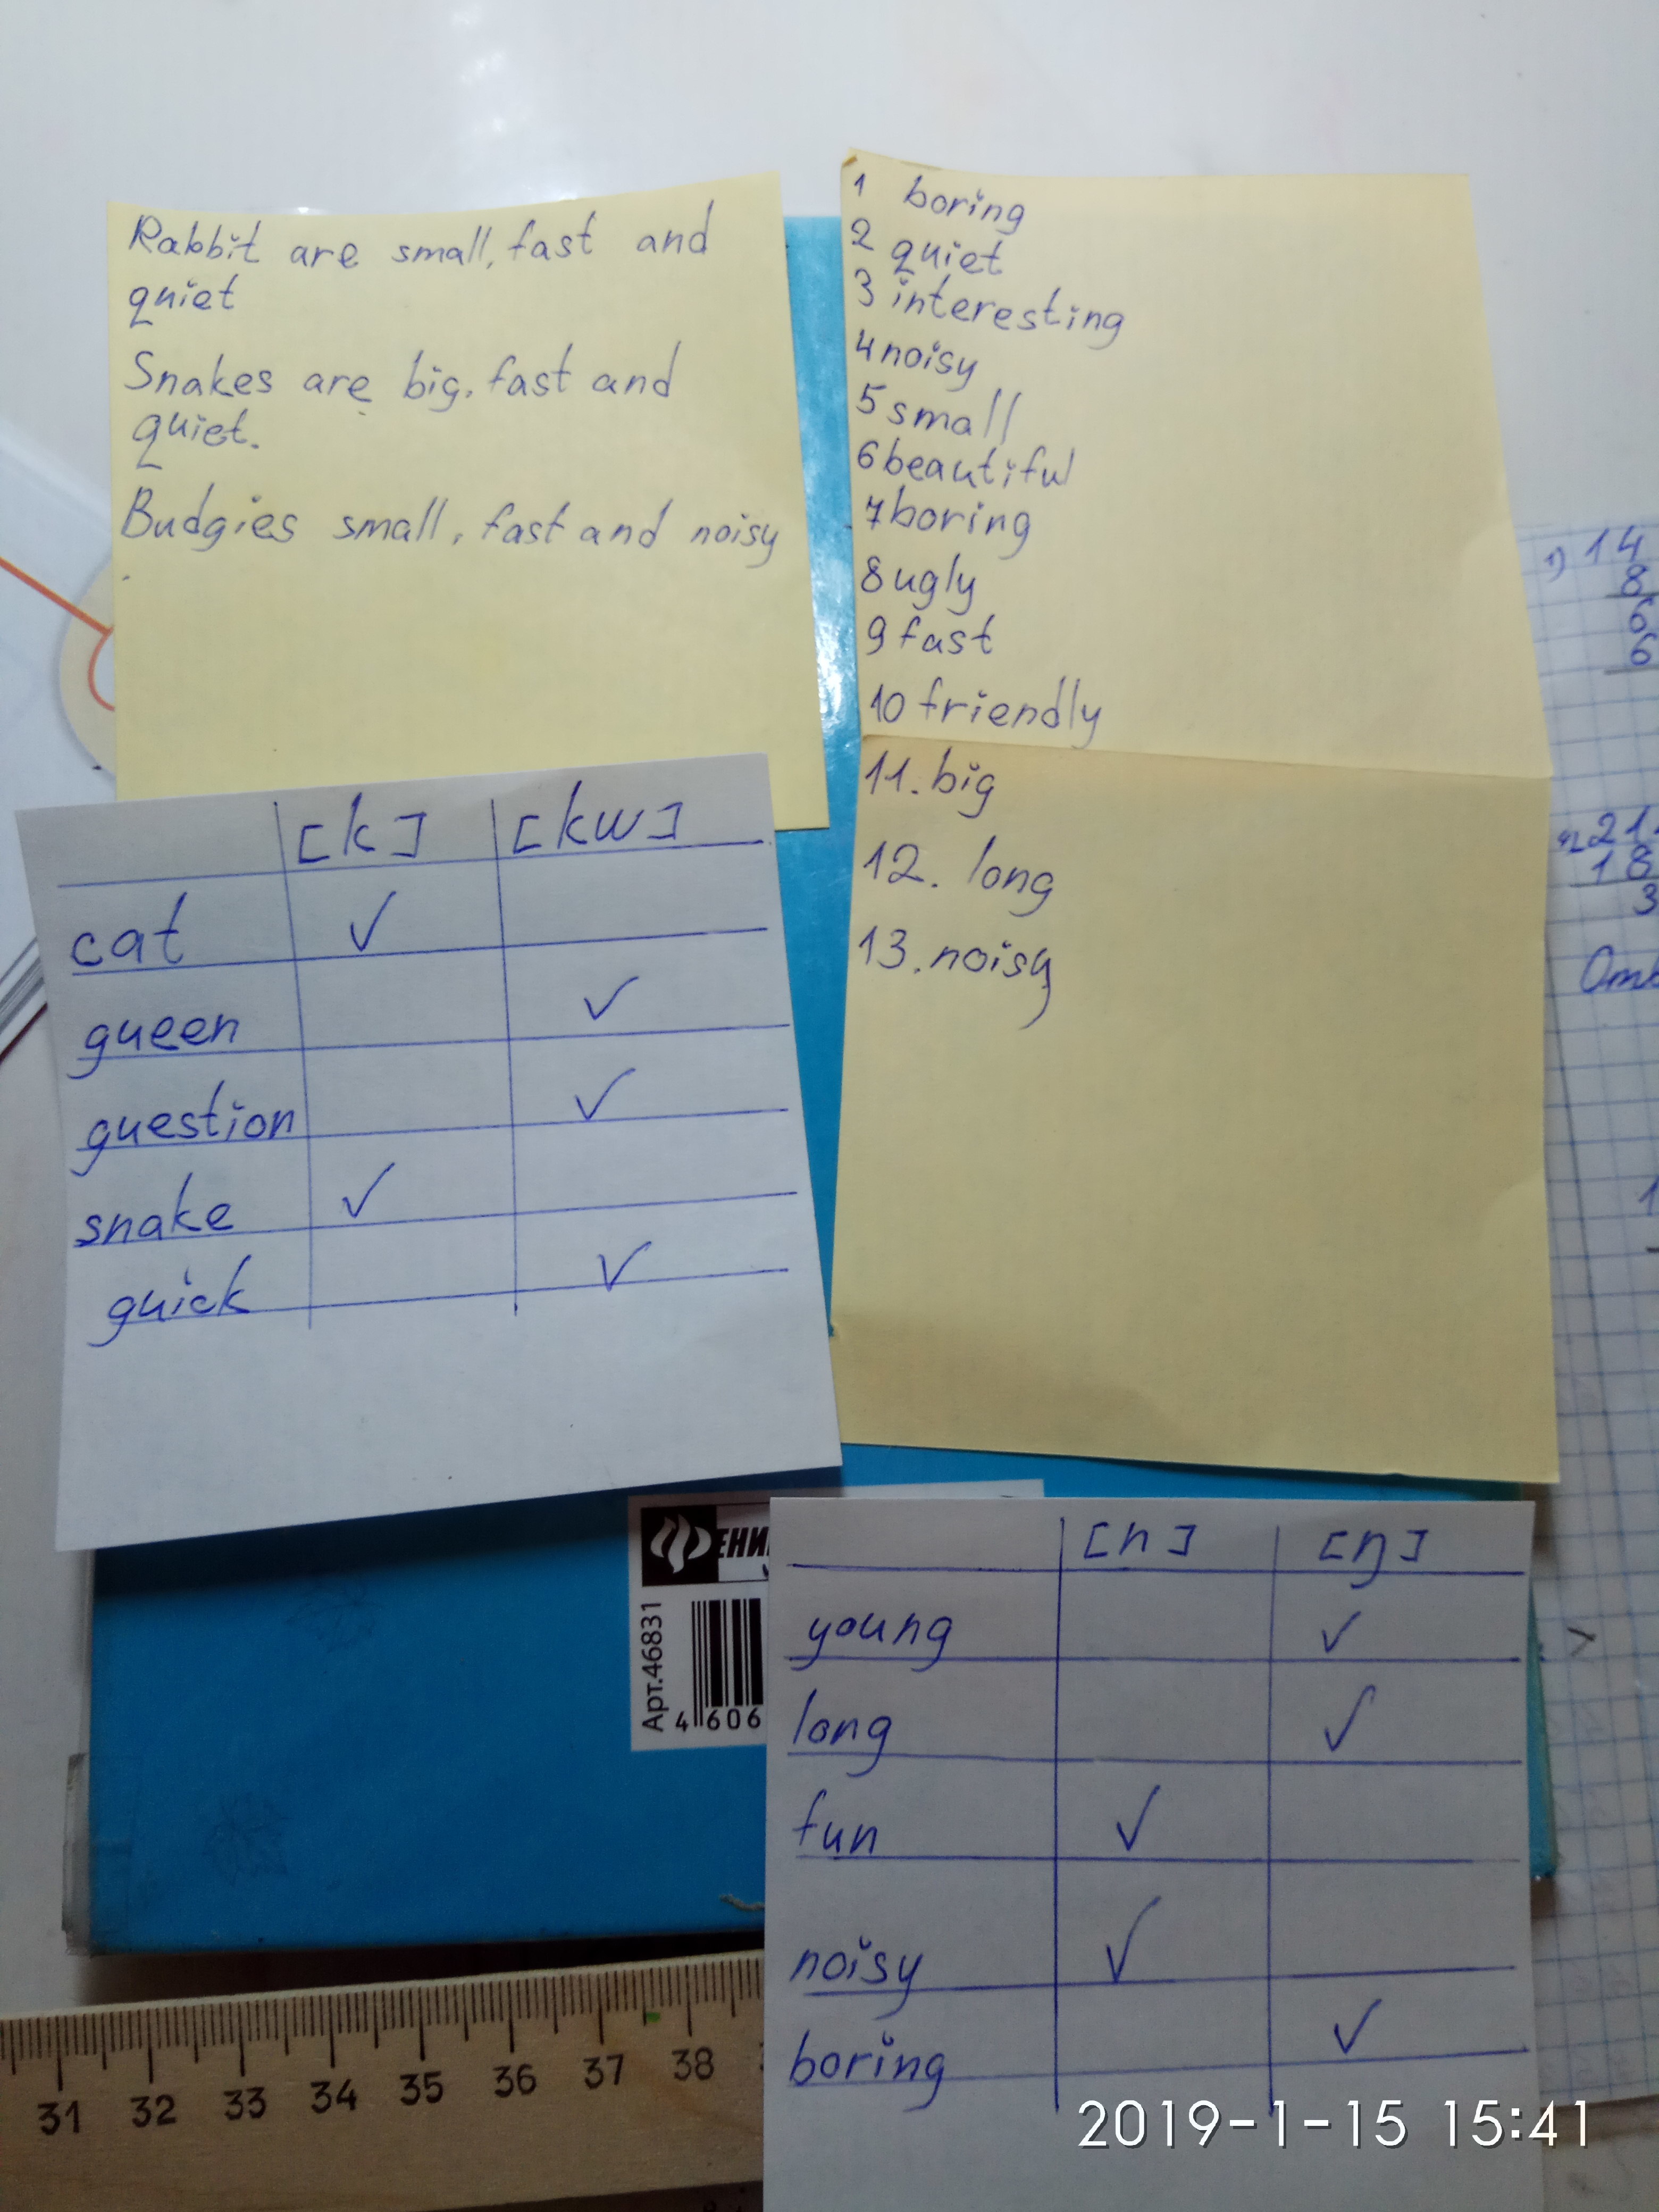 Rabbit are small, fast and
quiet
Snakes are big, fast and
quiet.
Budgies small, fast and noisy
.
1 boring
2 quiet
3 interesting
4 noisy
5 small
6 beautiful
7 boring
8 ugly
9 fast
10 friendly
11. big
12. long
13. noisy
[k] [kw]
cat ✓
gueen ✓
guestion ✓
snake ✓
guick ✓
[n] [ŋ]
young ✓
long ✓
fun ✓
noisy ✓
boring ✓
1) 14
8
6
6
21
18
3
Арт.46831
4 606
31 32 33 34 35 36 37 38
2019-1-15 15:41